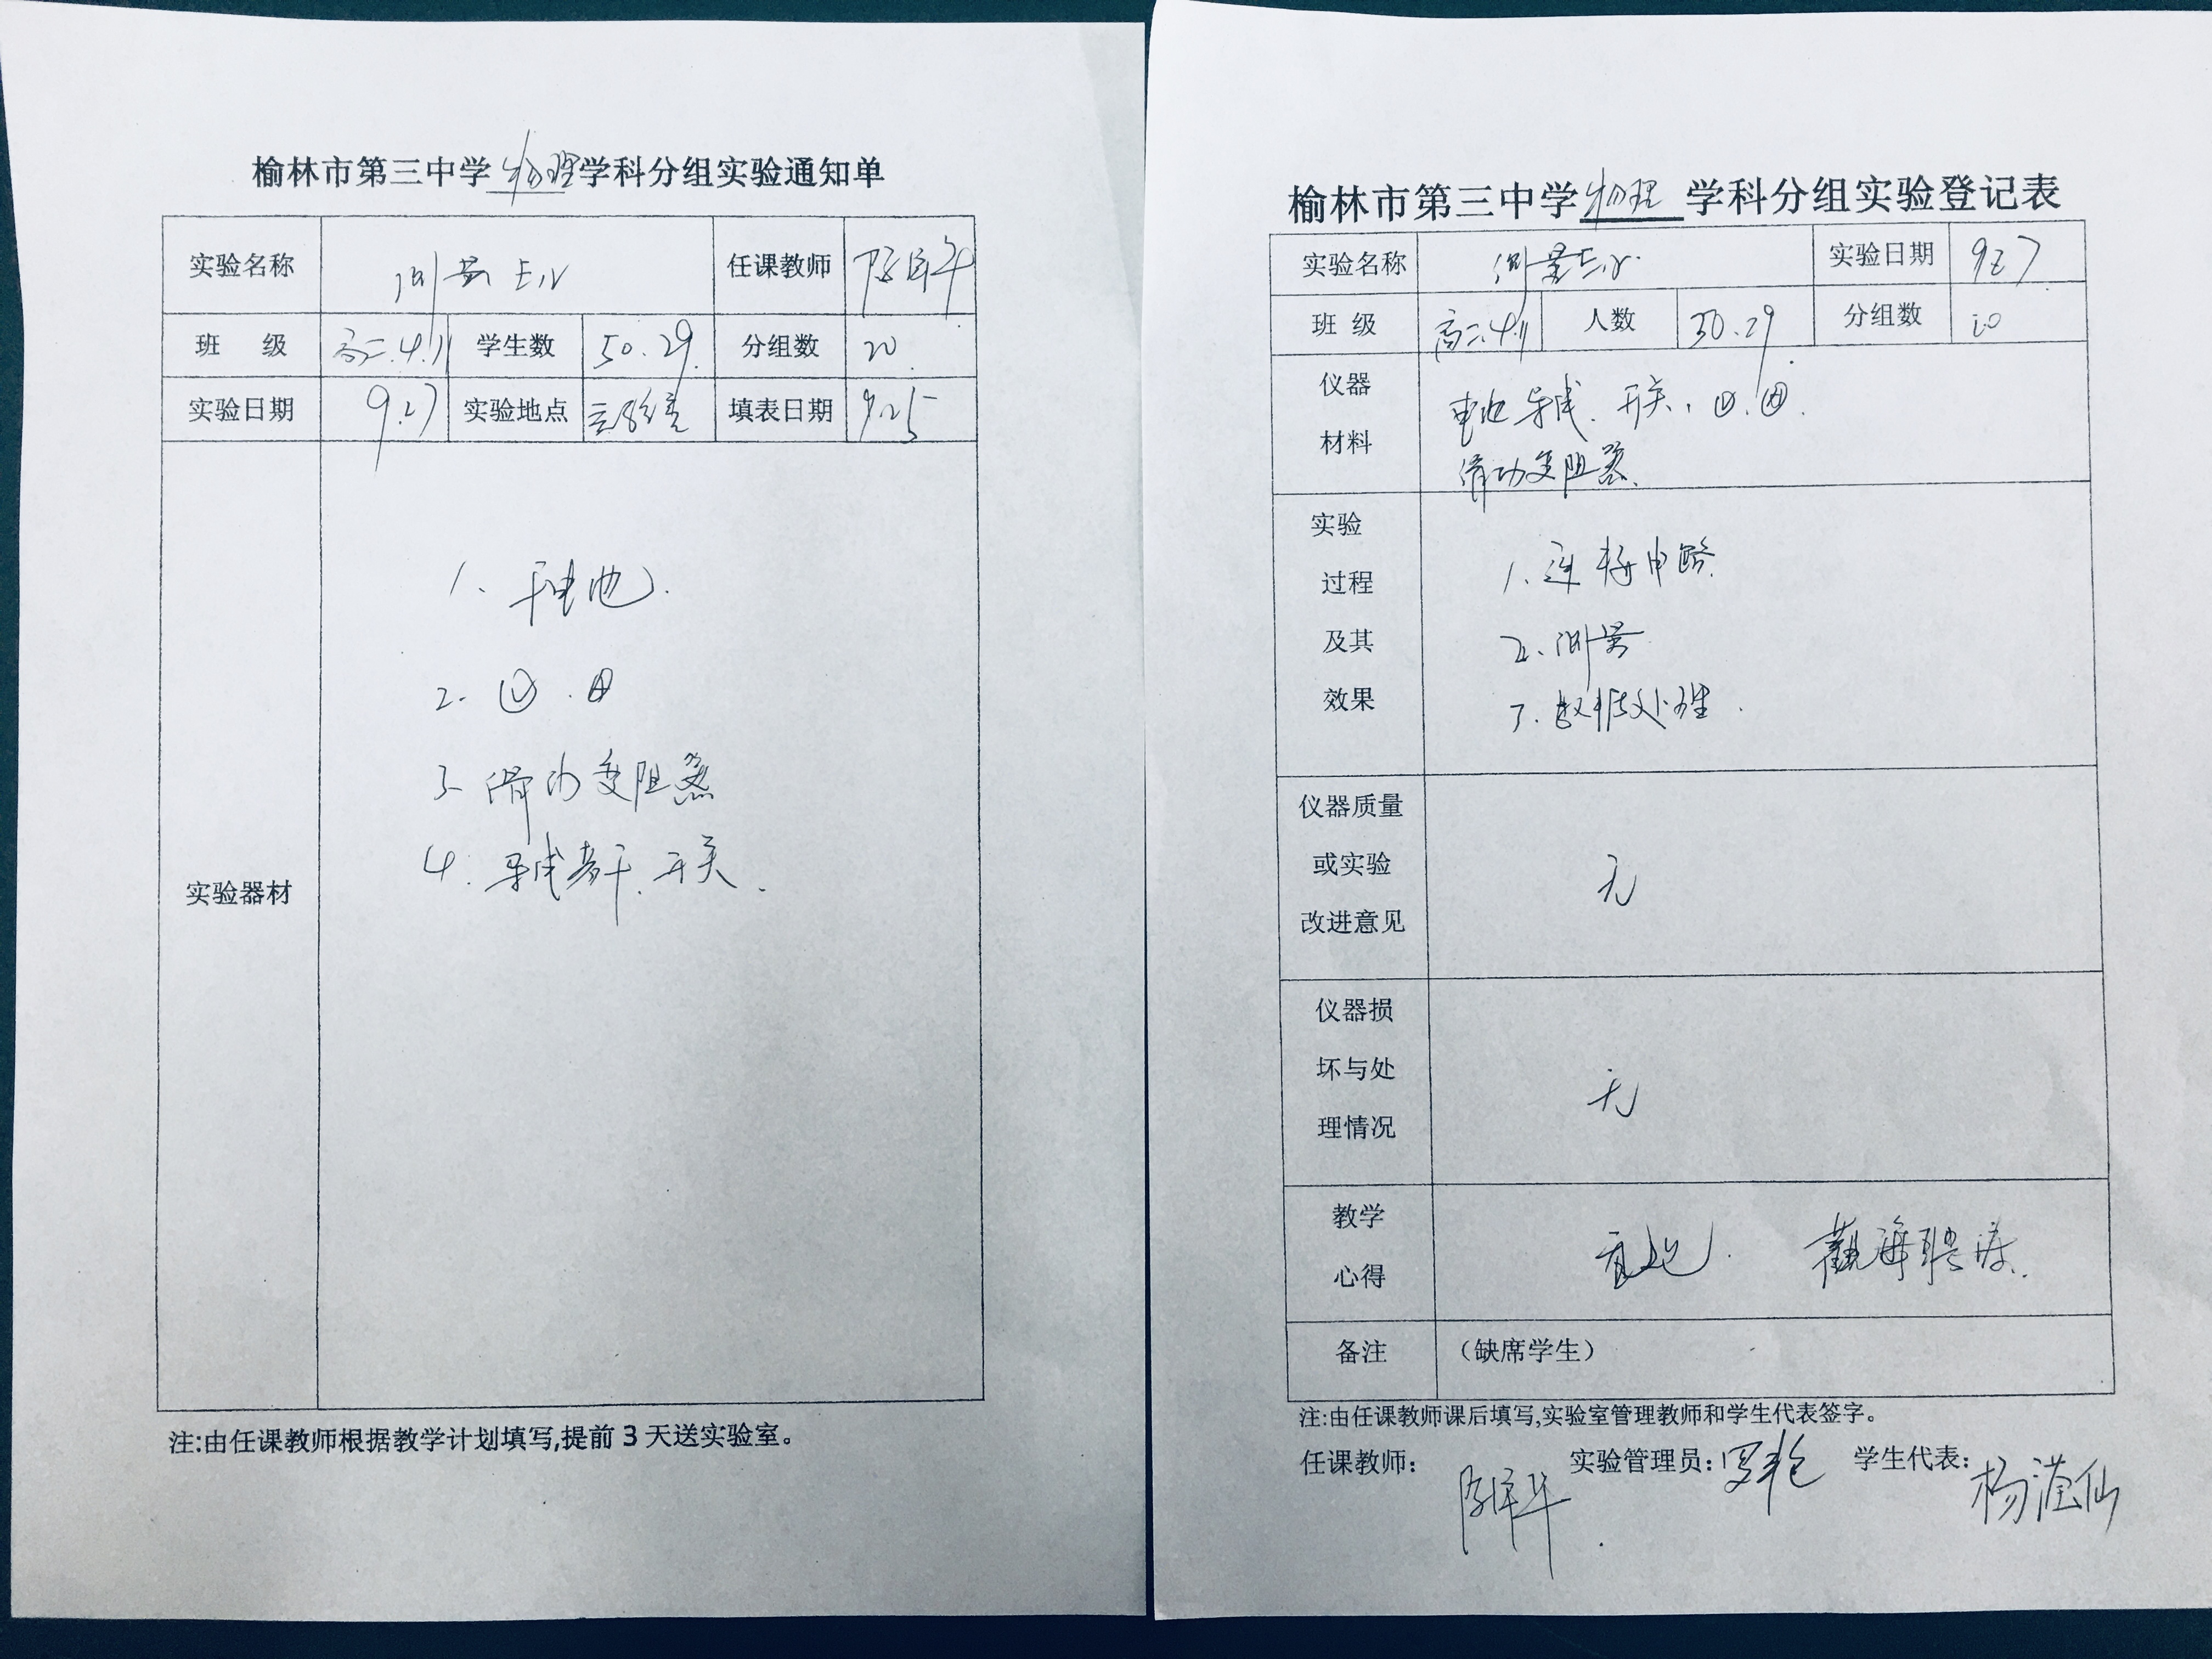 榆林市第三中学物理学科分组实验通知单
实验名称 测量E,r 任课教师
班 级 高二.4.11 学生数 50.29 分组数 20
实验日期 9.27 实验地点 填表日期 9.25
实验器材
1. 干电池.
2. Ⓥ. Ⓐ
3. 滑动变阻器
4. 导线若干. 开关.
注:由任课教师根据教学计划填写,提前 3 天送实验室。
榆林市第三中学物理学科分组实验登记表
实验名称 测量E,r. 实验日期 9.27
班 级 高二.4.11 人数 50.29 分组数 20
仪器材料
电池 导线. 开关. Ⓥ. Ⓐ.
滑动变阻器.
实验过程及其效果
1. 连接电路
2. 测量
3. 数据处理.
仪器质量或实验改进意见 无
仪器损坏与处理情况 无
教学心得
备注 （缺席学生）
注:由任课教师课后填写,实验室管理教师和学生代表签字。
任课教师： 实验管理员： 学生代表：杨滢仙